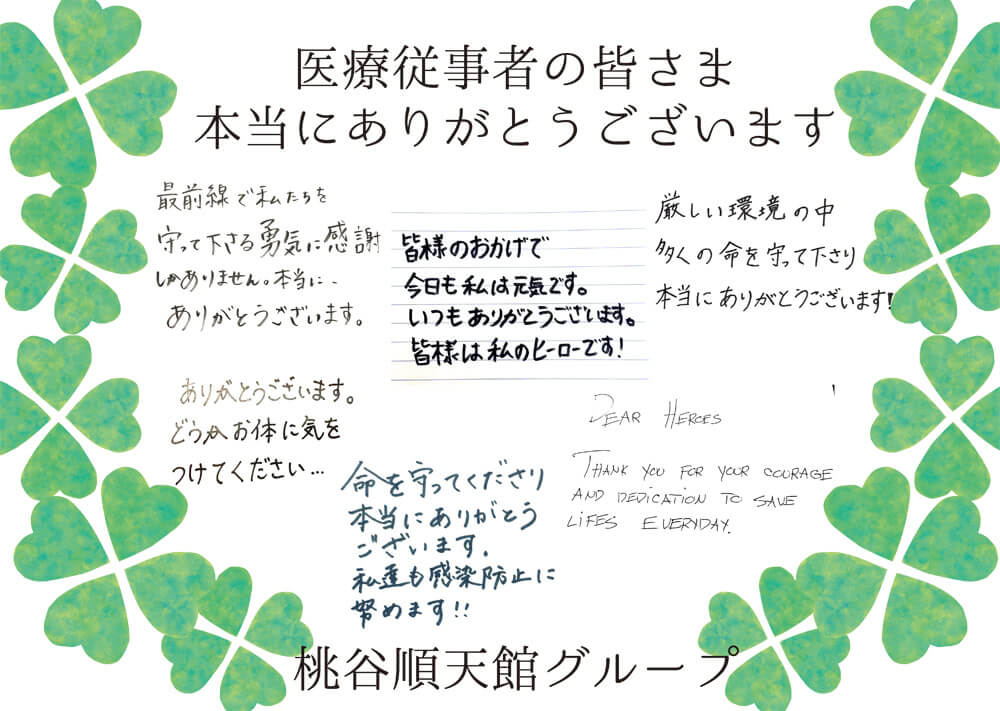 医療従事者の皆さま
本当にありがとうございます
最前線で私たちを
守って下さる勇気に感謝
しかありません。本当に、
ありがとうございます。
皆様のおかげで
今日も私は元気です。
いつもありがとうございます。
皆様は私のヒーローです!
厳しい環境の中
多くの命を守って下さり
本当にありがとうございます!
ありがとうございます。
どうかお体に気を
つけてください…
命を守ってくださり
本当にありがとう
ございます.
私達も感染防止に
努めます!!
DEAR HEROES
THANK YOU FOR YOUR COURAGE
AND DEDICATION TO SAVE
LIFES EVERYDAY.
桃谷順天館グループ